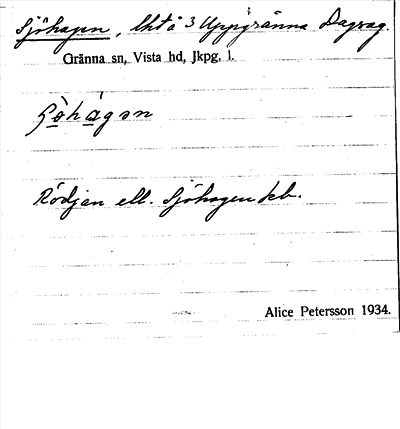 Sjöhagen, lht å 3 Uppgränna Dagsag.
Gränna sn, Vista hd, Jkpg. l.
Rödjan ell. Sjöhagen kb.
Alice Petersson 1934.